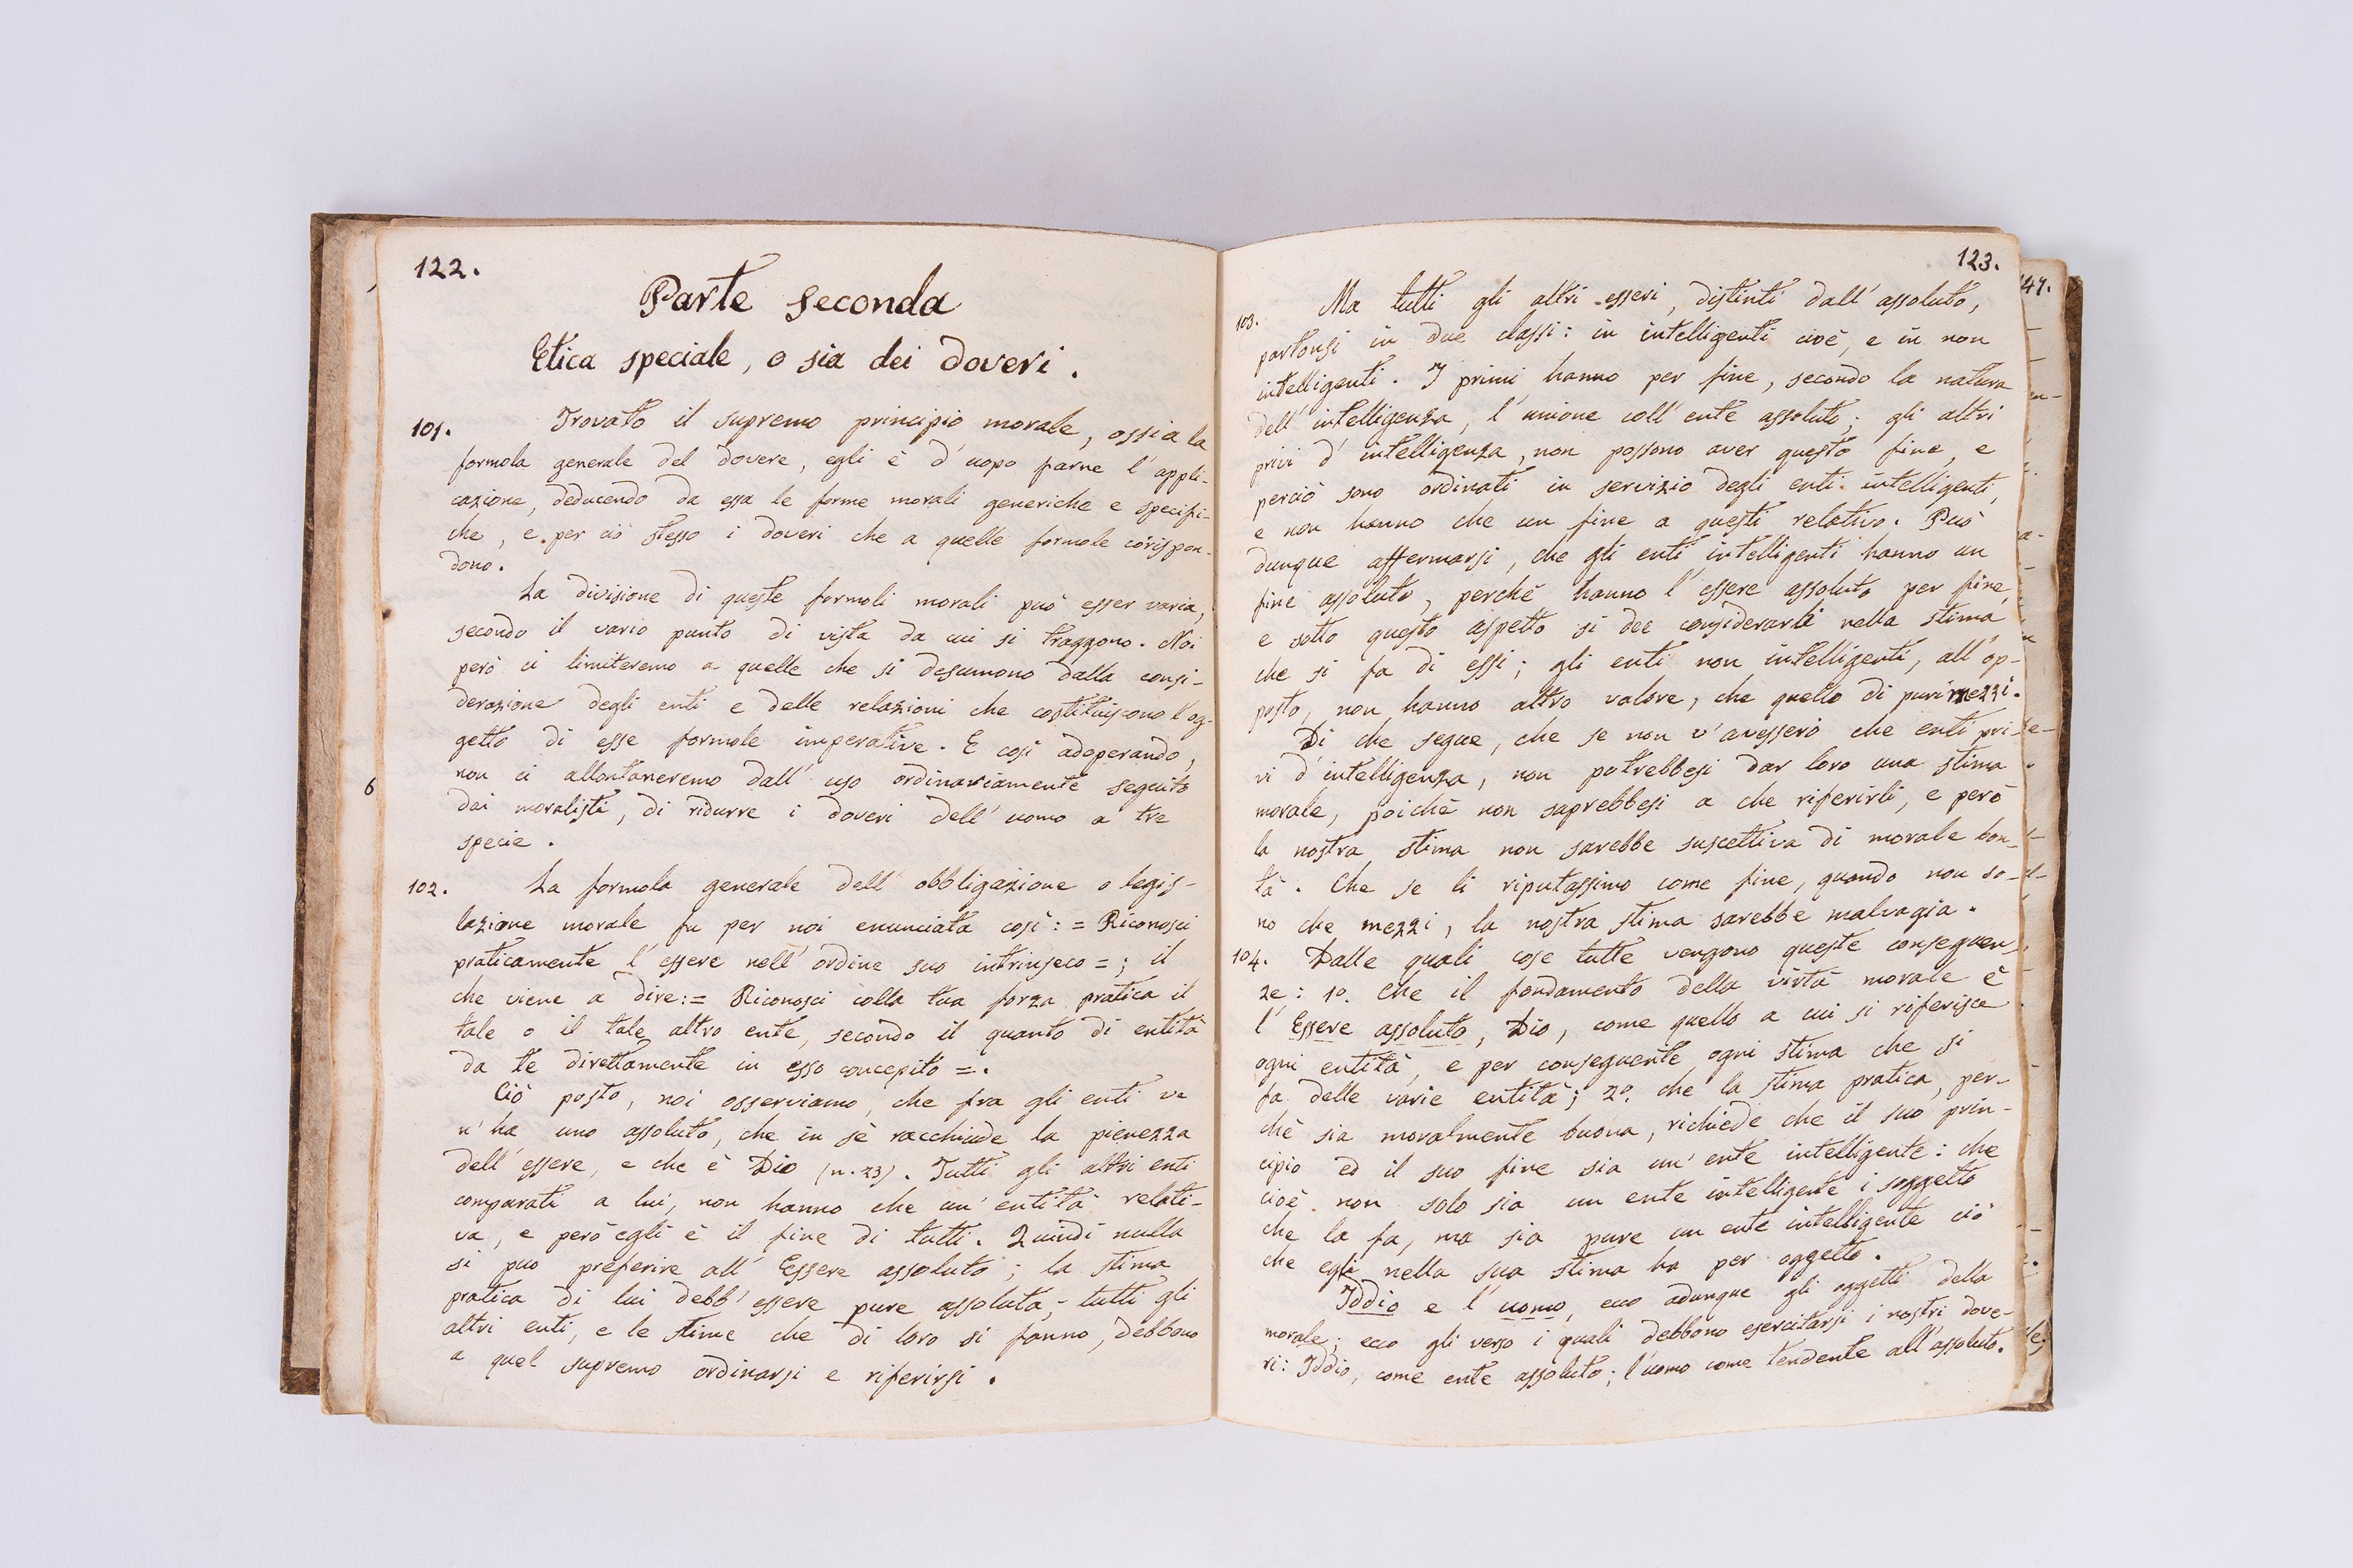 122.
Parte seconda
Etica speciale, o sia dei doveri.
101. Trovato il supremo principio morale, ossia la
formola generale del dovere, egli è d'uopo farne l'appli-
cazione, deducendo da essa le forme morali generiche e specifi-
che, e per ciò stesso i doveri che a quelle formole corispon-
dono.
La divisione di queste formoli morali può esser varia,
secondo il vario punto di vista da cui si traggono. Noi
però ci limiteremo a quelle che si desumono dalla consi-
derazione degli enti e delle relazioni che costituiscono l'og-
getto di esse formole imperative. E così adoperando,
non ci allontaneremo dall'uso ordinariamente seguito
dai moralisti, di ridurre i doveri dell'uomo a tre
specie.
102. La formola generale dell'obbligazione o legis-
lazione morale fu per noi enunciata così: = Riconosci
praticamente l'essere nell'ordine suo intrinseco =; il
che viene a dire: = Riconosci colla tua forza pratica il
tale o il tale altro ente, secondo il quanto di entità
da te direttamente in esso concepito =.
Ciò posto, noi osserviamo, che fra gli enti ve
n'ha uno assoluto, che in sè racchiude la pienezza
dell'essere, e che è Dio (n. 23). Tutti gli altri enti
comparati a lui, non hanno che un'entità relati-
va, e però egli è il fine di tutti. Quindi nulla
si può preferire all'Essere assoluto; la stima
pratica di lui debb'essere pure assoluta; tutti gli
altri enti, e le stime che di loro si fanno, debbono
a quel supremo ordinarsi e riferirsi.
6
123.
103. Ma tutti gli altri esseri, distinti dall'assoluto,
partonsi in due classi: in intelligenti cioè, e in non
intelligenti. I primi hanno per fine, secondo la natura
dell'intelligenza, l'unione coll'ente assoluto; gli altri
privi d'intelligenza, non possono aver questo fine, e
perciò sono ordinati in servizio degli enti intelligenti,
e non hanno che un fine a questi relativo. Può
dunque affermarsi, che gli enti intelligenti hanno un
fine assoluto, perchè hanno l'essere assoluto per fine,
e sotto questo aspetto si dee considerarli nella stima
che si fa di essi; gli enti non intelligenti, all'op-
posto, non hanno altro valore, che quello di puri mezzi.
Di che segue, che se non v'avessero che enti pri-
vi d'intelligenza, non potrebbesi dar loro una stima
morale, poichè non saprebbesi a che riferirli, e però
la nostra stima non sarebbe suscettiva di morale bon-
tà. Che se li riputassimo come fine, quando non so-
no che mezzi, la nostra stima sarebbe malvagia.
104. Dalle quali cose tutte vengono queste conseguen-
ze: 1º. Che il fondamento della virtù morale è
l'Essere assoluto, Dio, come quello a cui si riferisce
ogni entità, e per conseguente ogni stima che si
fa delle varie entità; 2º. che la stima pratica, per-
chè sia moralmente buona, richiede che il suo prin-
cipio ed il suo fine sia un'ente intelligente: che
cioè non solo sia un ente intelligente il soggetto
che la fa, ma sia pure un ente intelligente ciò
che egli nella sua stima ha per oggetto.
Iddio e l'uomo, ecco adunque gli oggetti della
morale; ecco gli verso i quali debbono esercitarsi i nostri dove-
ri: Iddio, come ente assoluto; l'uomo come tendente all'assoluto.